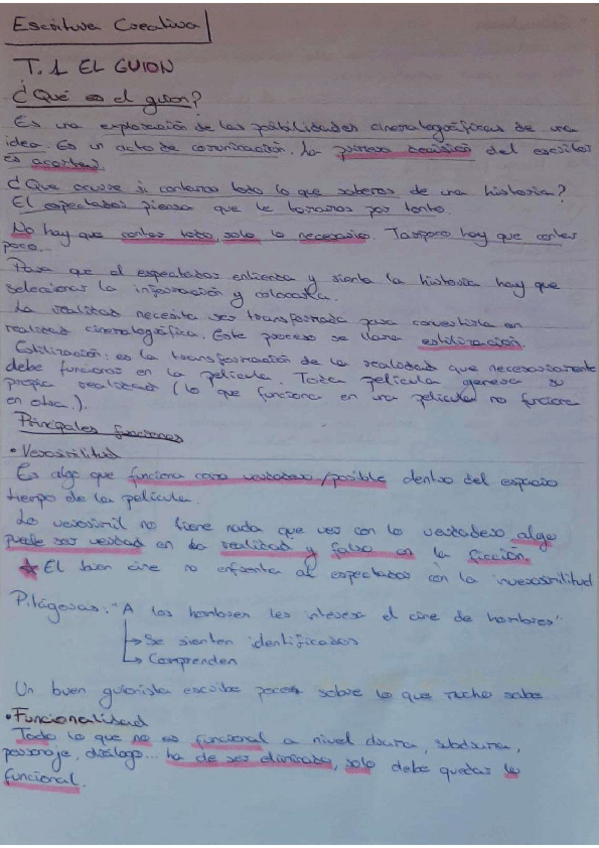 Escritura Creativa
T.1 EL GUION
¿Qué es el guion?
Es una exploración de las posibilidades cinematográficas de una
idea. Es un acto de comunicación. La primera decisión del escritor
es acortar.
¿Que ocurre si contamos todo lo que sabemos de una historia?
El espectador piensa que le tomamos por tonto.
No hay que contar todo, solo lo necesario. Tampoco hay que contar
poco...
Para que el espectador entienda y sienta la historia hay que
seleccionar la información y colocarla.
La realidad necesita ser transformada para convertirla en
realidad cinematográfica. Este proceso se llama estilización.
Estilización: es la transformación de la realidad que necesariamente
debe funcionar en la película. Toda película genera su
propia realidad (lo que funciona en una película no funciona
en otra.).
Principales funciones
• Verosimilitud
Es algo que funciona como verdadero/posible dentro del espacio
tiempo de la película.
Lo verosimil no tiene nada que ver con lo verdadero, algo
puede ser verdad en la realidad y falso en la ficción.
★ El buen cine no enfrenta al espectador con la inverosimilitud
Pitágoras: "A los hombres les interesa el cine de hombres".
→ Se sienten identificados
→ Comprenden
Un buen guionista escribe poco sobre lo que mucho sabe
• Funcionalidad
Todo lo que no es funcional a nivel trama, subtrama,
personaje, diálogo... ha de ser eliminado, solo debe quedar lo
funcional.